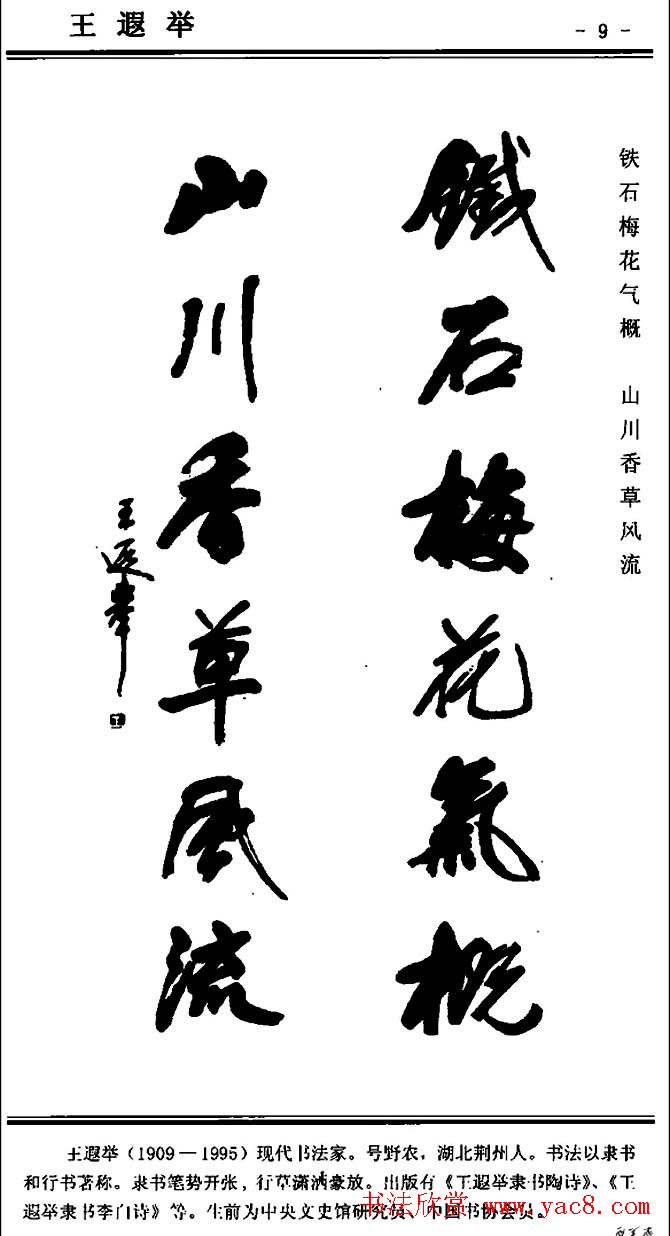 王遐举
- 9 -
铁石梅花气概 山川香草风流
鐵石梅花氣概
山川香草風流
王遐舉
王遐举（1909－1995）现代书法家。号野农，湖北荆州人。书法以隶书
和行书著称。隶书笔势开张，行草潇洒豪放。出版有《王遐举隶书陶诗》、《王
遐举隶书李白诗》等。生前为中央文史馆研究员、中国书协会员。
书法欣赏 www.yac8.com